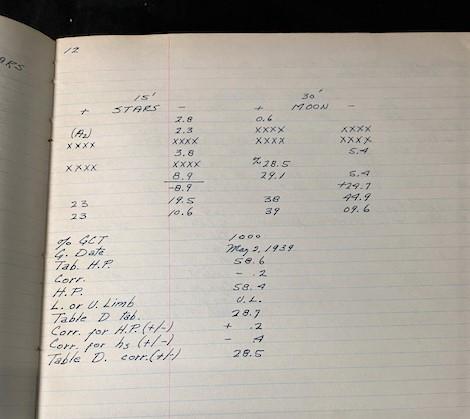 ARS
12
15' 30'
+ STARS - + MOON -
2.8 0.6
(A2) 2.3 XXXX XXXX
XXXX XXXX XXXX XXXX
3.8 5.4
XXXX XXXX 28.5
8.9 29.1 5.4
-8.9 +23.7
23 19.5 38 44.9
23 10.6 39 09.6
GCT 1000
G. Date May 2, 1939
Tab. H.P. 58.6
Corr. - .2
H.P. 58.4
L. or U. Limb U.L.
Table D tab. 28.7
Corr. for H.P. (+/-) + .2
Corr. for hs (+/-) - .4
Table D. corr. (+/-) 28.5